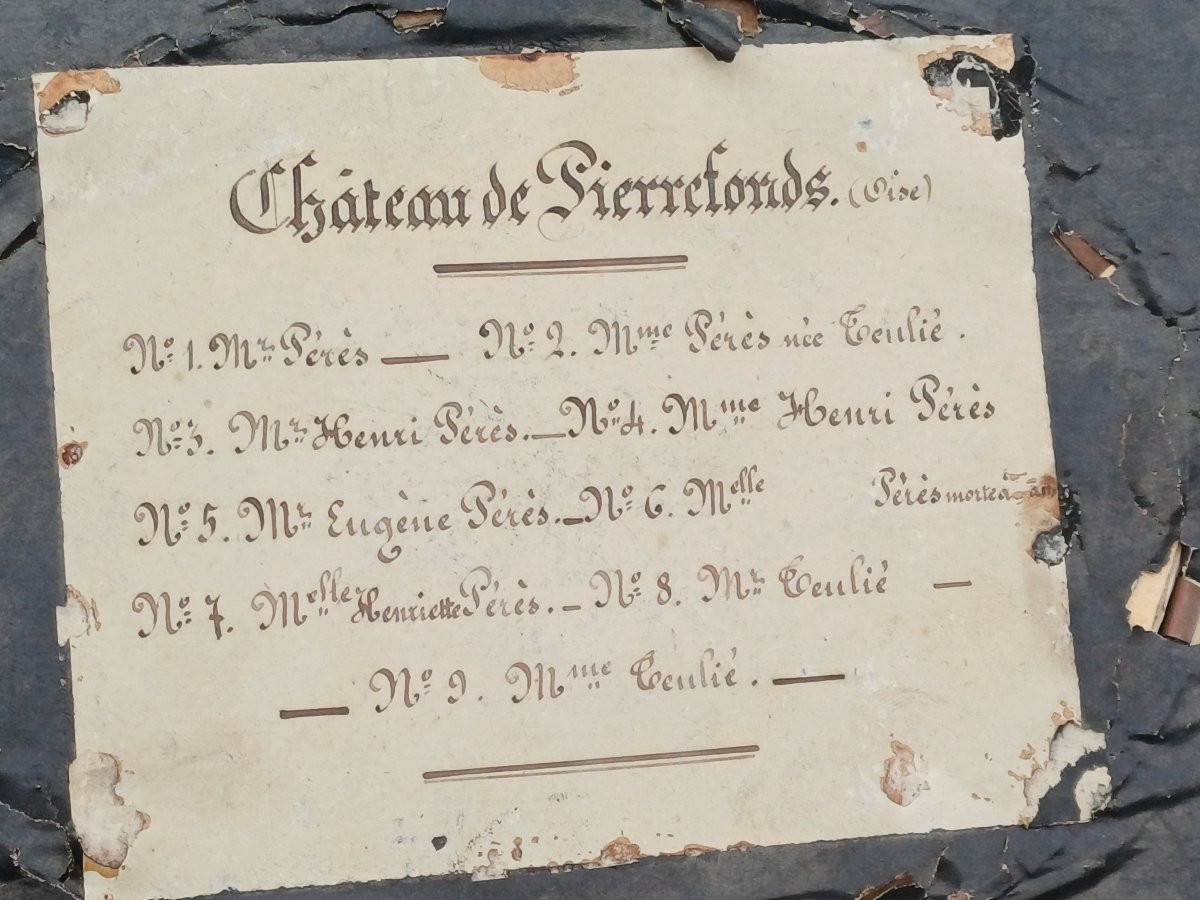 Château de Pierrefonds. (Oise)
No 1. Mr Pérès — No 2. Mme Pérès née Teulié.
No 3. Mr Henri Pérès. — No 4. Mme Henri Pérès
No 5. Mr Eugène Pérès. — No 6. Melle Pérès morte à
No 7. Melle Henriette Pérès. — No 8. Mr Teulié —
— No 9. Mme Teulié. —